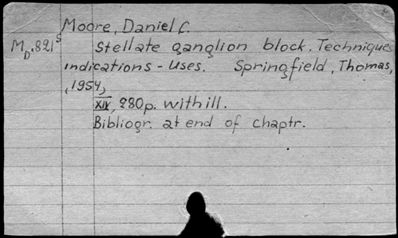 Moore, Daniel C.
MD.821s Stellate ganglion block. Techniques
indications - Uses. Springfield, Thomas,
(1954)
XIV, 280p. with ill.
Bibliogr. at end of chaptr.